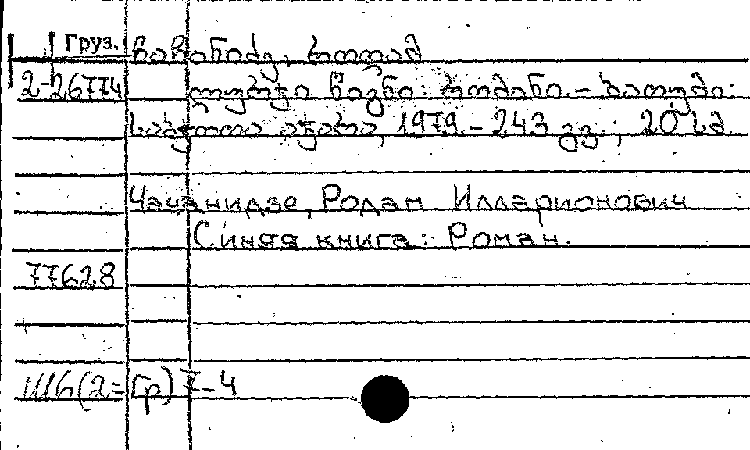 Груз. ჩაჩანიძე, როდამ
2-26774 ლურჯი წიგნი: რომანი. – ბათუმი:
საბჭოთა აჭარა, 1979. – 243 გვ.; 20 სმ
Чачанидзе, Родам Илларионович
Синяя книга: Роман.
77628
Ш6(2=Гр)7-4